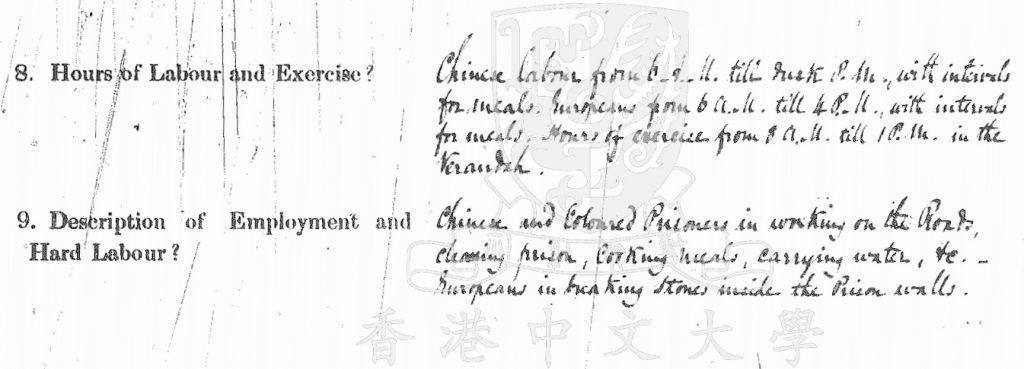 8. Hours of Labour and Exercise?
Chinese labour from 6 A.M. till dusk P.M., with intervals
for meals. Europeans from 6 A.M. till 4 P.M., with intervals
for meals. Hours of exercise from 8 A.M. till 1 P.M. in the
Verandah.
9. Description of Employment and
Hard Labour?
Chinese and Coloured Prisoners in working on the Roads,
cleaning prison, cooking meals, carrying water, &c. –
Europeans in breaking stones inside the Prison walls.
香港中文大學